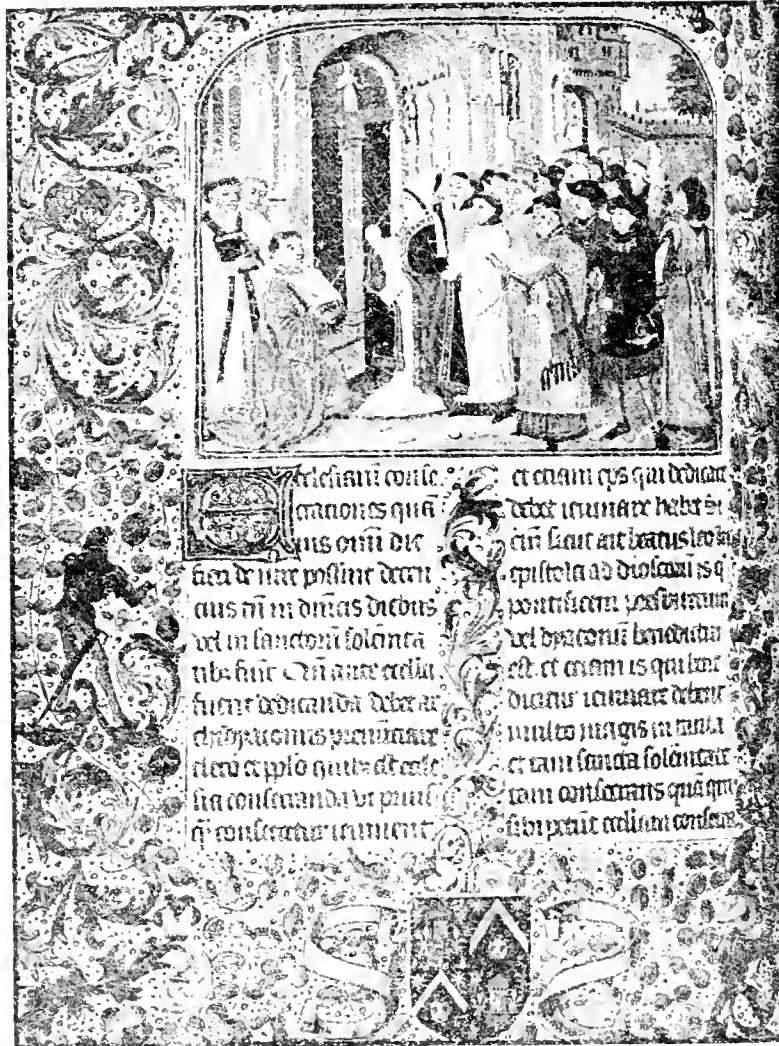 Ecclesiarū conse
crationes quā
uis omī die
fieri de iure possint decen
cius tn̄ in dn̄icis diebus
vel in sanctorū solēnita
tibꝫ fiūt
fuerit dedicanda debet ar
chidyaconus prenūciare
clero et pplo qui illi est eccle
sia consecranda vt prius
qꝫ consecretur ieiunent
et etiam ep̄s qui dedicare
debet ieiunare
sicut ait beatus leo
epistola ad dioscorū is q
pontificem
vel dyaconū
est et etiam is qui bene
dicitur ieiunare debent
multo magis in tanta
et tam sancta solēnitate
tam consecrans quā qui
sibi petūt eccl̄iam